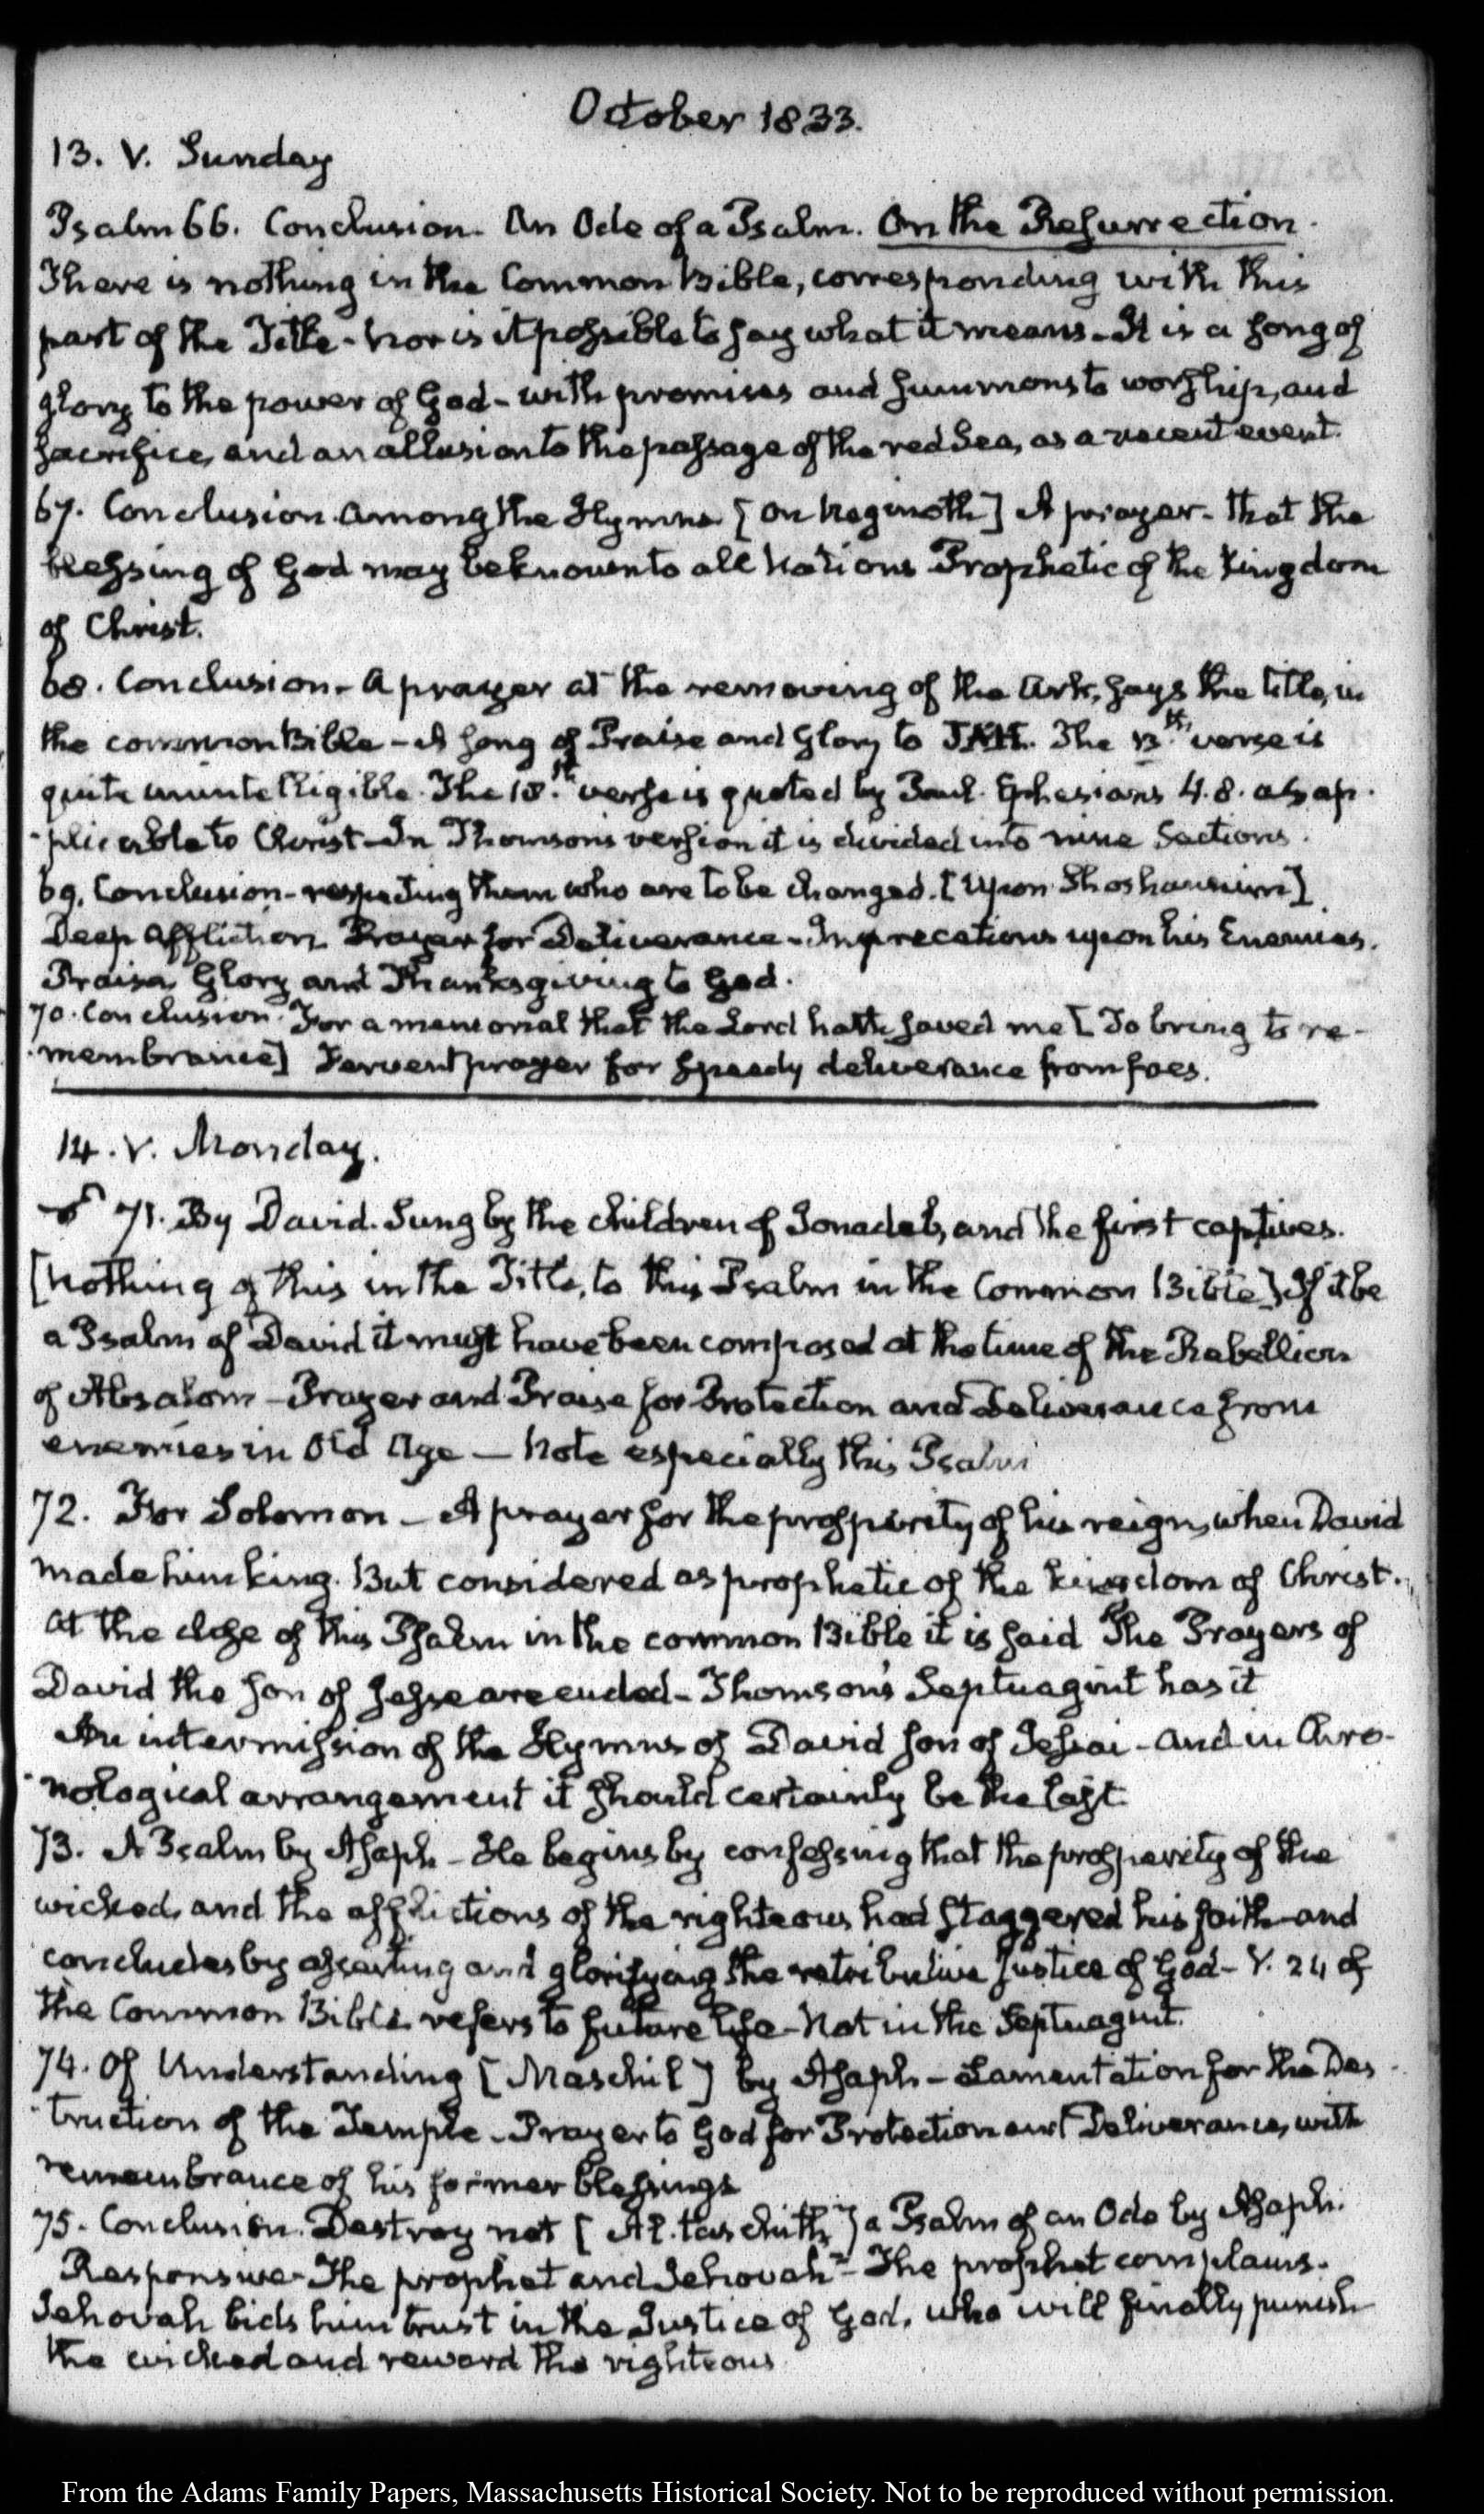 October 1833.
13. V. Sunday
Psalm 66. Conclusion. An Ode of a Psalm. On the Resurrection.
There is nothing in the Common Bible, corresponding with this
part of the Title - nor is it possible to say what it means - It is a song of
glory to the power of God - with promises and summons to worship, and
sacrifice, and an allusion to the passage of the red Sea, as a recent event.
67. Conclusion among the Hymns [on Neginoth] A prayer - that the
blessing of God may be known to all Nations Prophetic of the Kingdom
of Christ.
68. Conclusion - A prayer at the removing of the Ark, says the title, in
the common Bible - A song of Praise and Glory to JAH. The 13th. verse is
quite unintelligible. The 18th. verse is quoted by Paul. Ephesians 4.8. as ap-
-plicable to Christ - In Thomson's version it is divided into nine Sections.
69. Conclusion - respecting them who are to be changed. [Upon Shoshannim]
Deep affliction Prayer for Deliverance - Imprecations upon his Enemies.
Praise, Glory and Thanksgiving to God.
70. Conclusion. For a memorial that the Lord hath saved me [To bring to re-
-membrance] Fervent prayer for speedy deliverance from foes.
14. V. Monday.
71. By David. Sung by the children of Jonadab, and the first captives.
[Nothing of this in the Title, to this Psalm in the Common Bible] If it be
a Psalm of David it must have been composed at the time of the Rebellion
of Absalom - Prayer and Praise for Protection and Deliverance from
enemies in Old Age — Note especially this Psalm
72. For Solomon - A prayer for the prosperity of his reign, when David
made him king. But considered as prophetic of the kingdom of Christ.
At the close of this Psalm in the common Bible it is said The Prayers of
David the son of Jesse are ended - Thomson's Septuagint has it
An intermission of the Hymns of David son of Jessai - and in Chro-
-nological arrangement it should certainly be the last
73. A Psalm by Asaph - He begins by confessing that the prosperity of the
wicked, and the afflictions of the righteous had staggered his faith - and
concludes by asserting and glorifying the retributive justice of God - V. 24 of
the Common Bible refers to future life - Not in the Septuagint.
74. Of Understanding [Maschil] by Asaph - Lamentation for the Des-
-truction of the Temple - Prayer to God for Protection and Deliverance, with
remembrance of his former blessings
75. Conclusion. Destroy not [Al. taschith] a Psalm of an Ode by Asaph.
Responsive - The prophet and Jehovah - The prophet complains.
Jehovah bids him trust in the Justice of God, who will finally punish
the wicked and reward the righteous
From the Adams Family Papers, Massachusetts Historical Society. Not to be reproduced without permission.